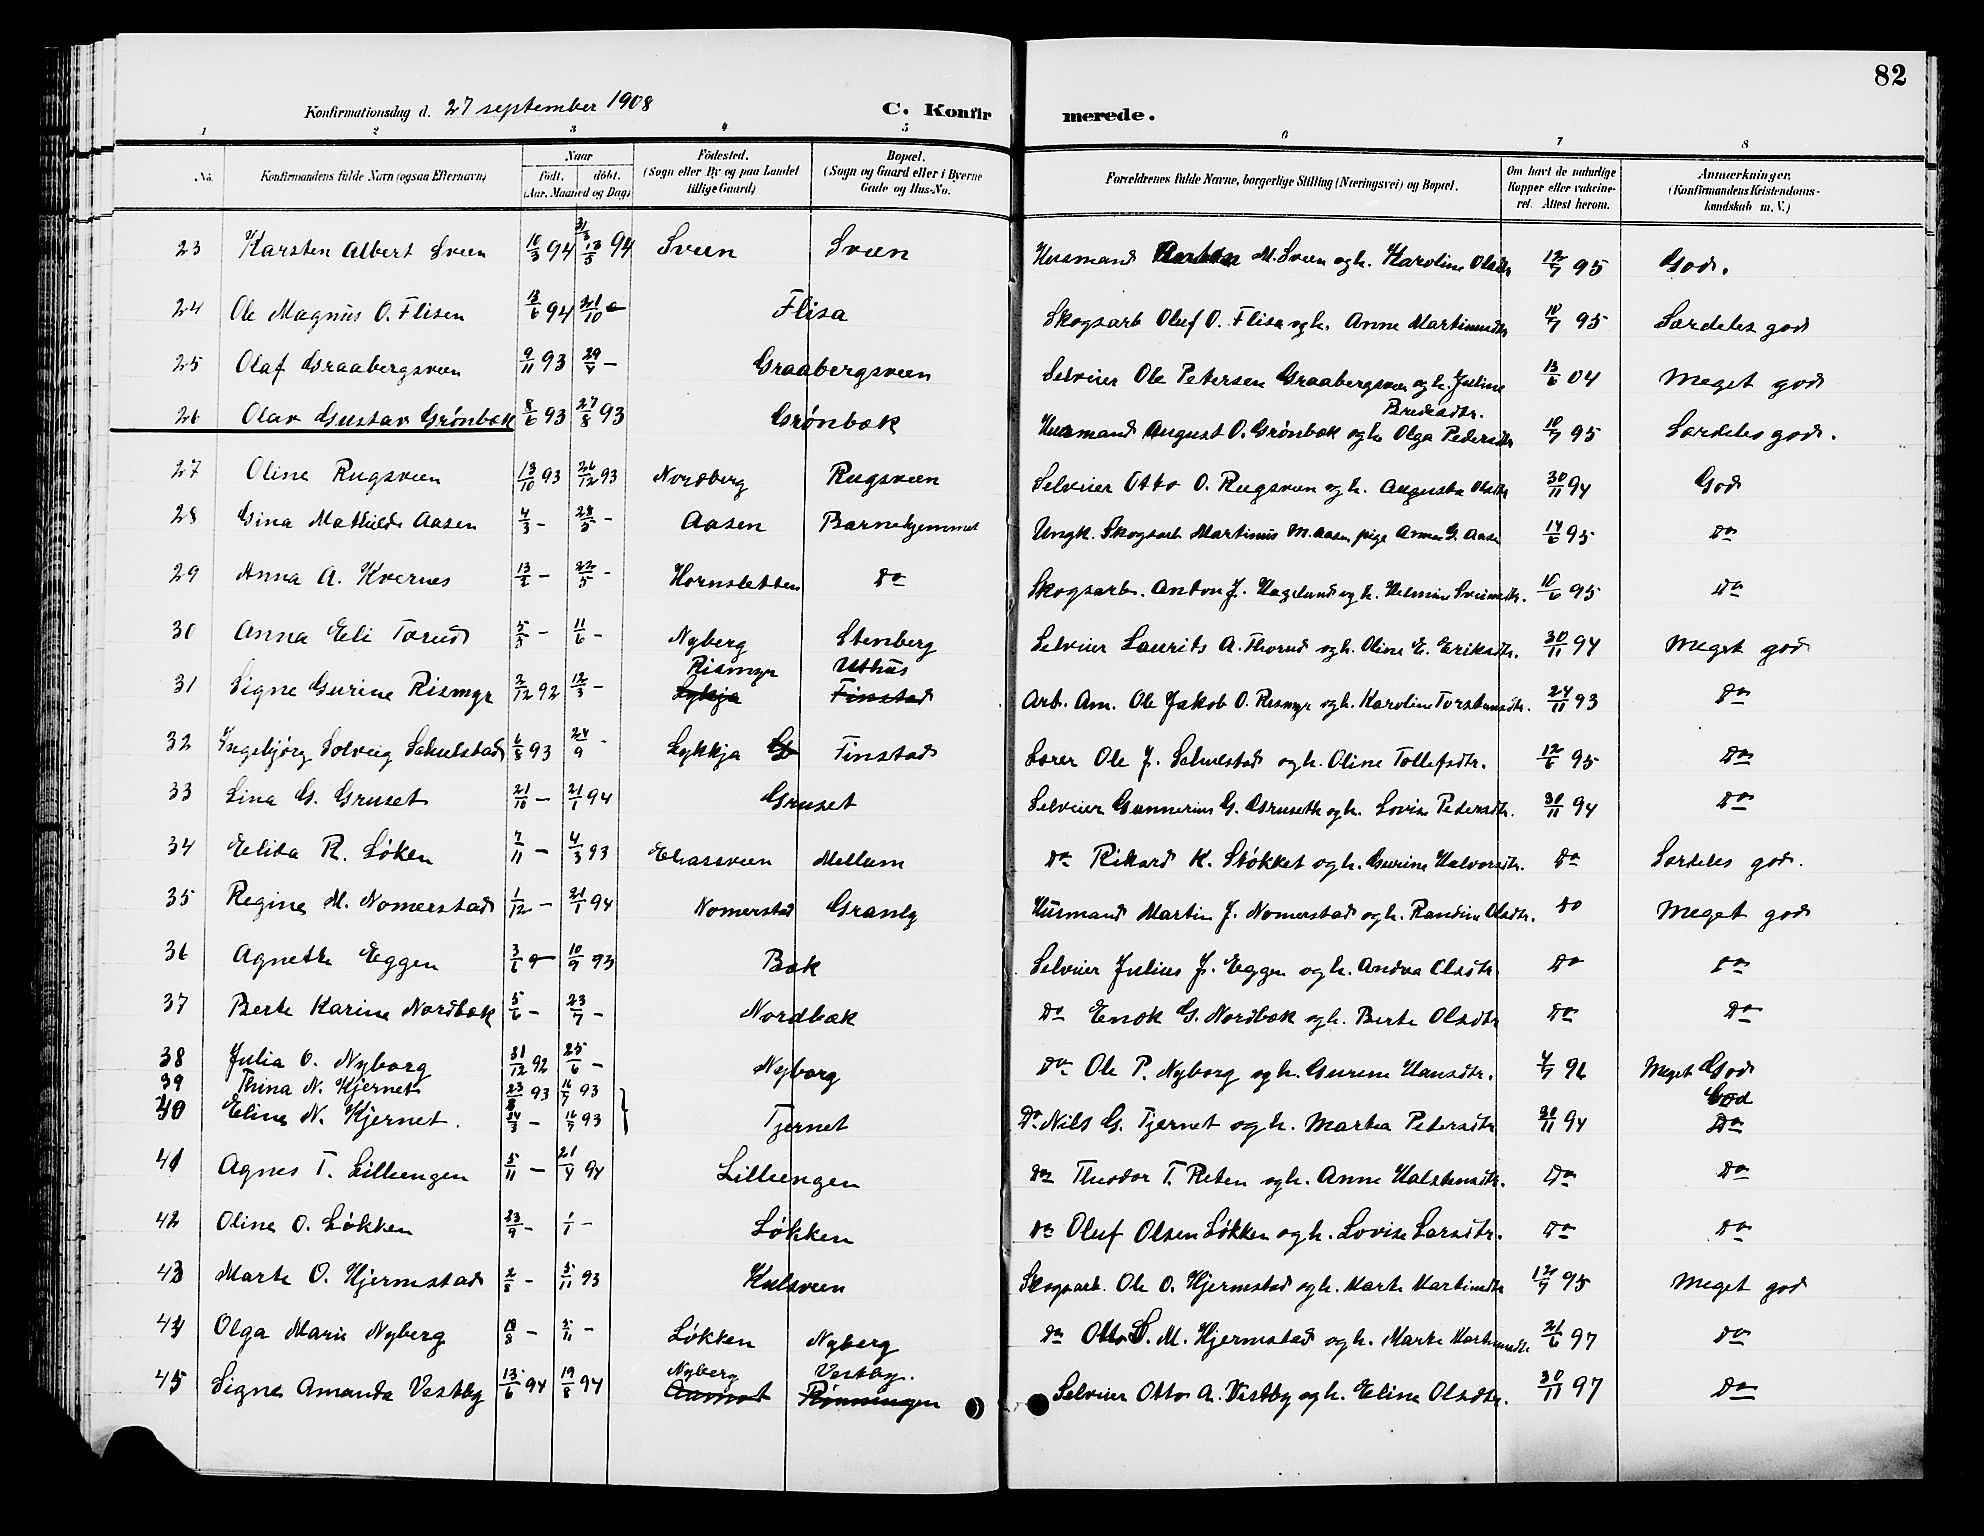 82
Konfirmationsdag d. 27 september 1908 C. Konfirmerede.
1 2 3 4 5 6 7 8
No. Konfirmandens fulde Navn (ogsaa Efternavn) Naar født. døbt. (Aar, Maaned og Dag) Fødested. (Sogn eller By og paa Landet tillige Gaard) Bopæl. (Sogn og Gaard eller i Byerne Gade og Hus-No. Forældrenes fulde Navne, borgerlige Stilling (Næringsvei) og Bopæl. Om havt de naturlige Kopper eller vaccineret. Attest herom. Anmærkninger. (Konfirmandens Kristendomskundskab m. V.)
23 Karsten Albert Sveen 10/3 94 13/5 94 Sveen Sveen Husmand M. Sveen og h. Karoline Olsdtr 12/7 95 God.
24 Ole Magnus O. Flisen 18/6 94 21/10 Flisa Skogsarb Oluf O. Flisa og h. Anne Martinusdtr 10/7 95 Særdeles god
25 Olaf Graabergsveen 9/11 93 29/7 – Graabergsveen Selveier Ole Petersen Graabergsveen og h. Juline Bredesdtr. 13/6 04 Meget god
26 Olav Gustav Grønbæk 8/6 93 27/8 93 Grønbæk Husmand August O. Grønbæk og h. Olga Pedersdtr 10/7 95 Særdeles god.
27 Oline Rugsveen 13/10 93 26/12 93 Nordberg Rugsveen Selveier Otto O. Rugsveen og h. Augusta Olsdtr 30/11 94 God
28 Gina Mathilde Aasen 4/3 – 28/5 – Aasen Barnehjemmet Ungk. Skogsarb Martinus M. Aasen, pige Anna G. Aasen 14/6 95 Do
29 Anna A. Kvernes 13/2 – 22/5 – Hornsletten Do Skogsarb. Anton J. Hagelund og h. Helmine Sveinsdtr. 10/6 95 Do
30 Anna Eli Torud 5/5 – 11/6 – Nyberg Stenberg Selveier Laurits A. Thorud og h. Oline E. Eriksdtr. 30/11 94 Meget god
31 Signe Gurine Rismyr 2/12 92 12/3 – Rismyr Lykkja Uthus Finstad Arb. Am. Ole Jakob O. Rismyr og h. Karoline Torstensdtr. 24/11 93 Do
32 Ingebjørg Solveig Schulstad 6/8 93 24/9 – Lykkja Finstad Lærer Ole J. Schulstad og h. Oline Tollefsdtr. 12/6 95 Do
33 Lina G. Gruset 21/10 – 21/1 94 Gruset Selveier Gunnerius G. Gruseth og h. Lovise Pedersdtr. 30/11 94 Do
34 Elisa R. Løken 7/11 – 4/3 93 Eliassveen Mellum Do Rikard K. Støkket og h. Gurine Halvorsdtr. Do Særdeles god.
35 Regine M. Nomerstad 1/12 – 21/1 94 Nomerstad Granly Husmand Martin J. Nomerstad og h. Randine Olsdtr. Do Meget god
36 Agnethe Eggen 3/6 – 10/9 93 Bæk Selveier Julius J. Eggen og h. Andrea Olsdtr. Do Do
37 Berte Karine Nordbæk 5/6 – 23/7 – Nordbæk Do Enok G. Nordbæk og h. Berte Olsdtr Do Do
38 Julia O. Nyborg 31/12 92 25/6 – Nyborg Do Ole P. Nyborg og h. Gurine Hansdtr. 4/7 96 Meget God
39 Thina N. Kjernet 23/8 93 16/7 93 God
40 Eline N. Kjernet. 24/3 – 16/7 93 Tjernet Do Nils G. Tjernet og h. Martea Pedersdtr 30/11 94 Do
41 Agnes T. Lilleengen 5/11 – 21/4 94 Lilleengen Do Theodor T. Reten og h. Anne Halstensdtr. Do Do
42 Oline O. Løkken 23/9 – 1/1 – Løkken Do Oluf Olsen Løkken og h. Lovise Larsdtr. Do Do
43 Marte O. Hjermstad 2/8 – 5/11 93 Kulsveen Skogsarb. Ole O. Hjermstad og h. Marte Martinsdtr 12/7 95 Meget god
44 Olga Marie Nyberg 18/8 – 5/11 – Løkken Nyberg Do Otto M. Hjermstad og h. Marte Martinusdtr. 21/6 97 Do
45 Signe Amanda Vestby 13/6 94 19/8 94 Nyberg Aamot Vestby. Rønningen Selveier Otto A. Vestby og h. Eline Olsdtr. 30/11 97 Do